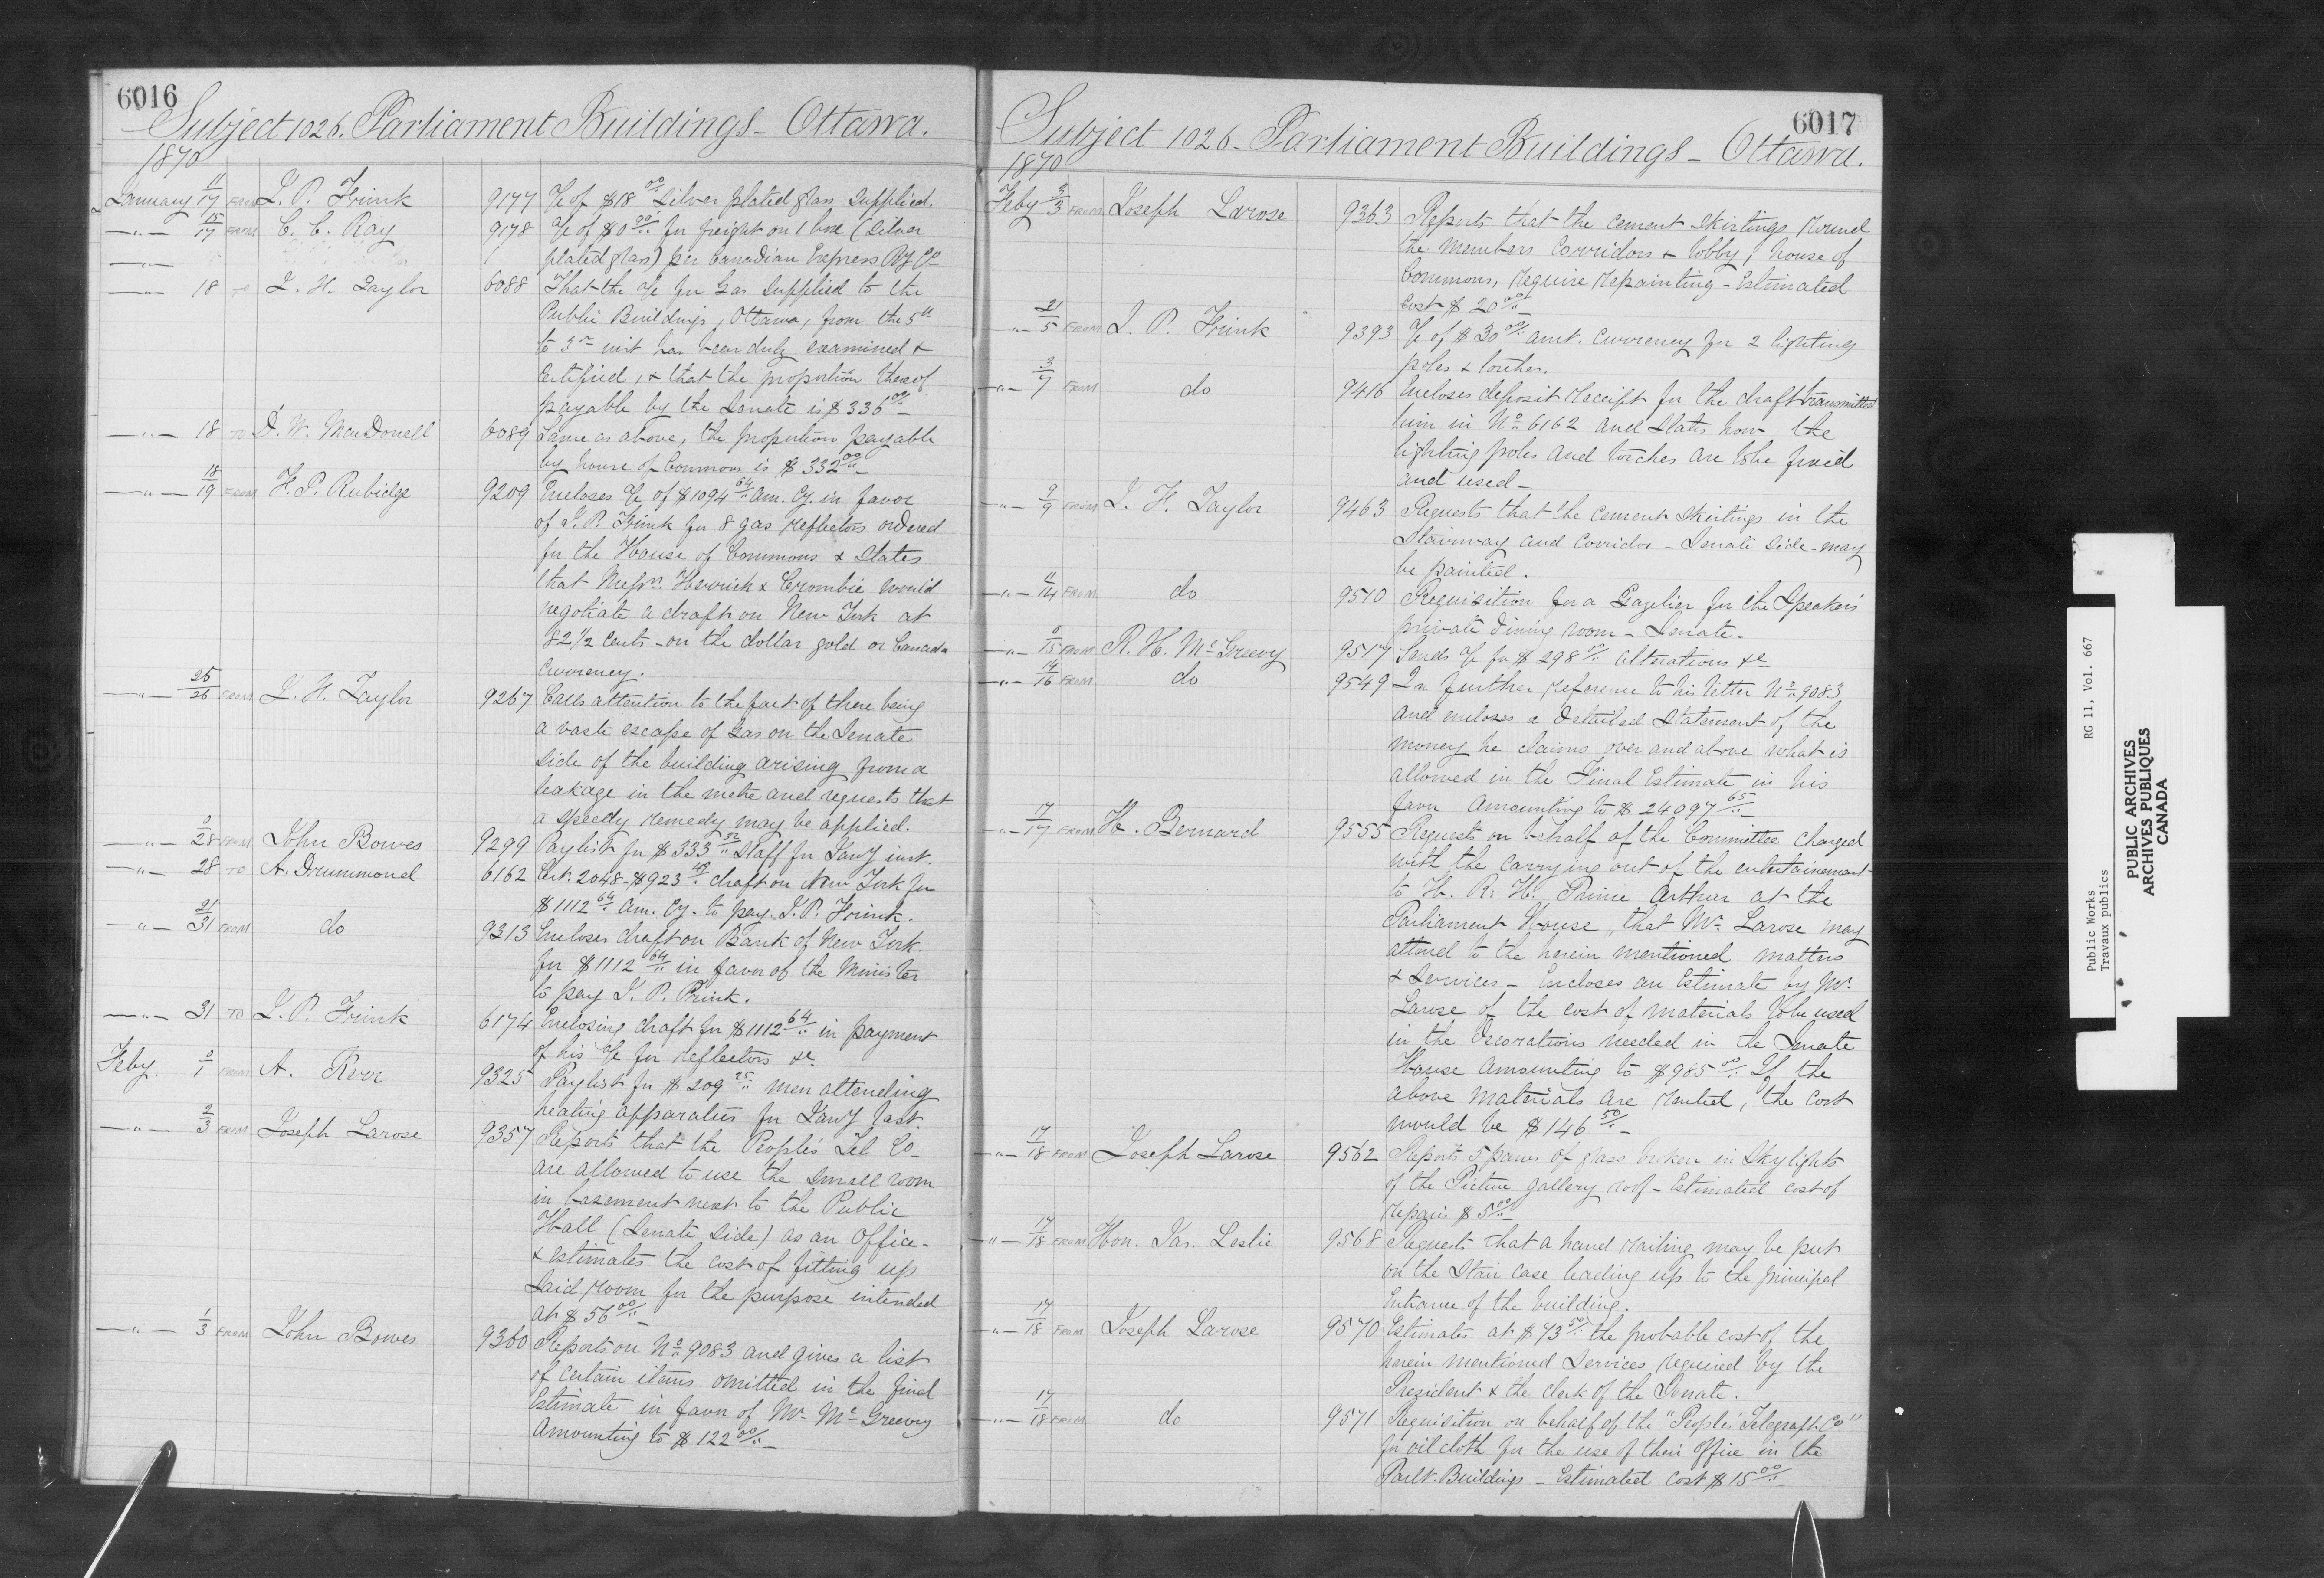 6016
Subject 1026. Parliament Buildings - Ottawa.
1870
January 11/17 FROM I. P. Frink 9177 a/c of $18 00/.. Silver plated glass supplied.
—"— 15/17 FROM C. C. Ray 9178 a/c of $0 for freight on 1 box (silver
plated glass) per Canadian Express Ry Co
—"— 18 TO J. H. Taylor 6088 That the a/c for Gas supplied to the
Public Buildings, Ottawa, from the 5th
to 3rd inst has been duly examined &
certified, & that the proportion thereof
payable by the Senate is $336 00/..
—"— 18 TO D. W. MacDonell 6089 Same as above, the proportion payable
by house of Commons is $332 00/..
—"— 18/19 FROM H. P. Rubidge 9209 Encloses a/c of $1094 64/.. Am. Cy. in favor
of I. P. Frink for 8 gas reflectors ordered
for the House of Commons & States
that Messrs. Herrick & Crombie would
negotiate a draft on New York at
82 1/2 cents - on the dollar gold or Canada
currency.
—"— 25/26 FROM J. H. Taylor 9267 Calls attention to the fact of there being
a vaste escape of Gas on the Senate
side of the building arising from a
leakage in the metre and requests that
a speedy remedy may be applied.
—"— 0/28 FROM John Bowes 9299 Paylist for $333 52/.. Staff for Jany inst.
—"— 28 TO A. Drummond 6162 Cert. 2048 - $923 draft on New York for
$1112 64/.. Am. Cy. to pay I. P. Frink.
—"— 31/31 FROM do 9313 Encloses draft on Bank of New York
for $1112 64/.. in favor of the Minister
to pay I. P. Frink.
—"— 31 TO I. P. Frink 6174 Enclosing draft for $1112 64/.. in payment
of his a/c for reflectors &c
Feby. 0/1 FROM A. 9325 Paylist for $209 25/.. men attending
heating apparatus for Jany last.
—"— 2/3 FROM Joseph Larose 9357 Reports that the People's Tel Co
are allowed to use the small room
in basement next to the Public
Hall (Senate Side) as an Office -
& estimates the cost of fitting up
said room for the purpose intended
at $56 00/..
—"— 1/3 FROM John Bowes 9360 Reports on No 9083 and gives a list
of certain items omitted in the final
Estimate in favor of Mr McGreevy
Amounting to $122 00/..
6017
Subject 1026 - Parliament Buildings - Ottawa.
1870
Feby 3/3 FROM Joseph Larose 9363 Reports that the cement skirtings round
the members corridors & lobby, house of
Commons, require repainting - Estimated
cost $20 00/..
—"— 21/5 FROM I. P. Frink 9393 a/c of $30 00/.. Amt. Currency for 2 lighting
poles & torches.
—"— 3/7 FROM do 9416 Encloses deposit receipt for the draft transmitted
him in No 6162 and States how the
lighting poles and torches are to be fixed
and used -
—"— 9/9 FROM J. H. Taylor 9463 Requests that the cement skirtings in the
Stairway and Corridor - Senate side - may
be painted.
—"— 11/14 FROM do 9510 Requisition for a Gazelier for the Speaker's
private dining room - Senate -
—"— 0/15 FROM R. H. McGreevy 9517 Sends a/c for $298 alterations &c
—"— 14/16 FROM do 9549 In further reference to his letter No 9083
and encloses a detailed Statement of the
money he claims over and above what is
allowed in the Final Estimate in his
favor Amounting to $24097 65/..
—"— 17/17 FROM H. Bernard 9555 Requests on behalf of the Committee charged
with the carrying out of the entertainement
to H. R. H. Prince Arthur at the
Parliament House, that Mr Larose may
attend to the herein mentioned matters
& Services - Encloses an Estimate by Mr.
Larose of the cost of materials to be used
in the decorations needed in the Senate
House Amounting to $985 00/.. If the
above materials are rented, the cost
would be $146 50/..
—"— 17/18 FROM Joseph Larose 9562 Reports 5 panes of glass broken in Skylights
of the Picture gallery roof - Estimated cost of
repairs $5 00/..
—"— 17/18 FROM Hon. Jas. Leslie 9568 Requests that a hand railing may be put
on the Stair case leading up to the principal
Entrance of the building.
—"— 17/18 FROM Joseph Larose 9570 Estimates at $73 50/.. the probable cost of the
herein mentioned Services required by the
President & the clerk of the Senate.
—"— 17/18 FROM do 9571 Requisition on behalf of the "People's Telegraph Co"
for oil cloth for the use of their office in the
Parlt. Buildings - Estimated cost $15 00/..
Public Works RG 11, Vol. 667
Travaux publics
PUBLIC ARCHIVES
ARCHIVES PUBLIQUES
CANADA